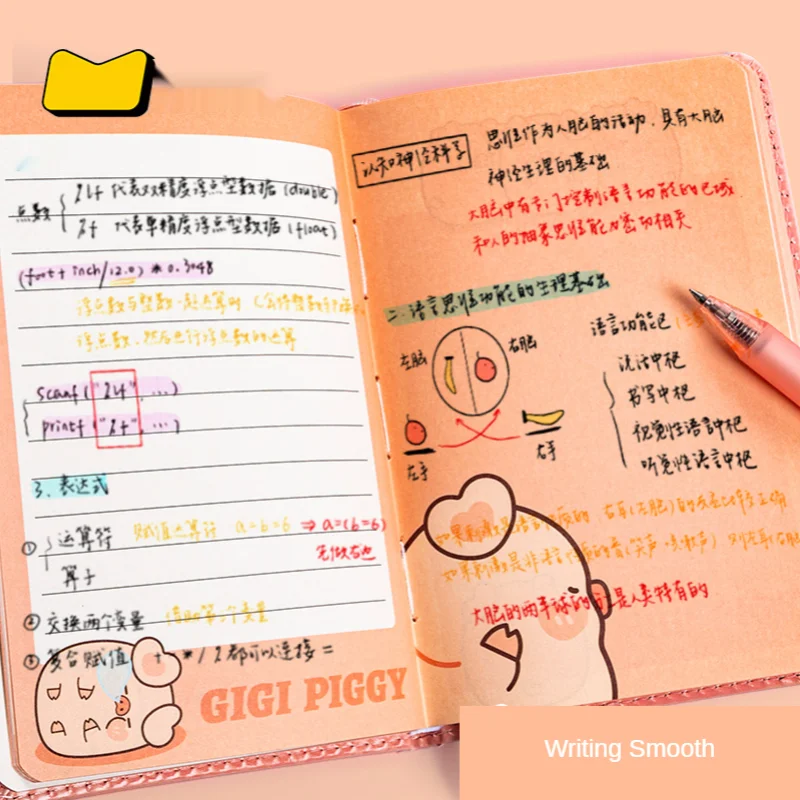 点数
lf 代表双精度浮点型数据 (double)
f 代表单精度浮点型数据 (float)
(foot + inch/12.0) * 0.3048
浮点数与整数一起运算时
浮点数,然后进行浮点数的运算
scanf ("lf", ...)
printf ("f", ...)
3. 表达式
① 运算符 赋值运算符 a=b=6 ⇒ a=(b=6)
算子
② 交换两个变量 借助第三个变量
③ 复合赋值 + - * / 都可以连接 =
GIGI PIGGY
认知神经科学
思维作为人脑的活动,具有大脑
神经生理的基础
大脑中有专门控制语言功能的区域
和人的抽象思维能力密切相关
二.语言思维功能的生理基础
左脑
右脑
左手
右手
语言功能区
说话中枢
书写中枢
视觉性语言中枢
听觉性语言中枢
如果刺激是语言性质的 右耳(左脑)的
如果刺激是非语言性质的音(笑声
大脑的两半球的 是人类特有的
Writing Smooth